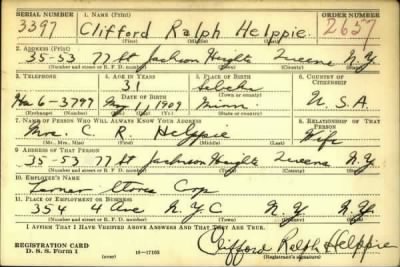 SERIAL NUMBER 1. NAME (Print) ORDER NUMBER
3397 Clifford Ralph Helppie 2657
(First) (Middle) (Last)
2. ADDRESS (Print)
35-53 77 St Jackson Heights Queens N.Y.
(Number and street or R. F. D. number) (Town) (County) (State)
3. TELEPHONE 4. AGE IN YEARS 5. PLACE OF BIRTH 6. COUNTRY OF CITIZENSHIP
31
DATE OF BIRTH (Town or county)
Ha 6-3797 May 1, 1909 Minn. U.S.A.
(Exchange) (No.) (Mo.) (Day) (Yr.) (State or country)
7. NAME OF PERSON WHO WILL ALWAYS KNOW YOUR ADDRESS 8. RELATIONSHIP OF THAT PERSON
Mrs. C. R. Helppie Wife
(Mr., Mrs., Miss) (First) (Middle) (Last)
9. ADDRESS OF THAT PERSON
35-53 77 St Jackson Heights Queens N.Y.
(Number and street or R. F. D. number) (Town) (County) (State)
10. EMPLOYER'S NAME
Stores Corp
11. PLACE OF EMPLOYMENT OR BUSINESS
354 4 Ave N.Y.C N.Y. N.Y.
(Number and street or R. F. D. number) (Town) (County) (State)
I AFFIRM THAT I HAVE VERIFIED ABOVE ANSWERS AND THAT THEY ARE TRUE.
REGISTRATION CARD
D. S. S. Form 1 16-17105 Clifford Ralph Helppie
(over) (Registrant's signature)